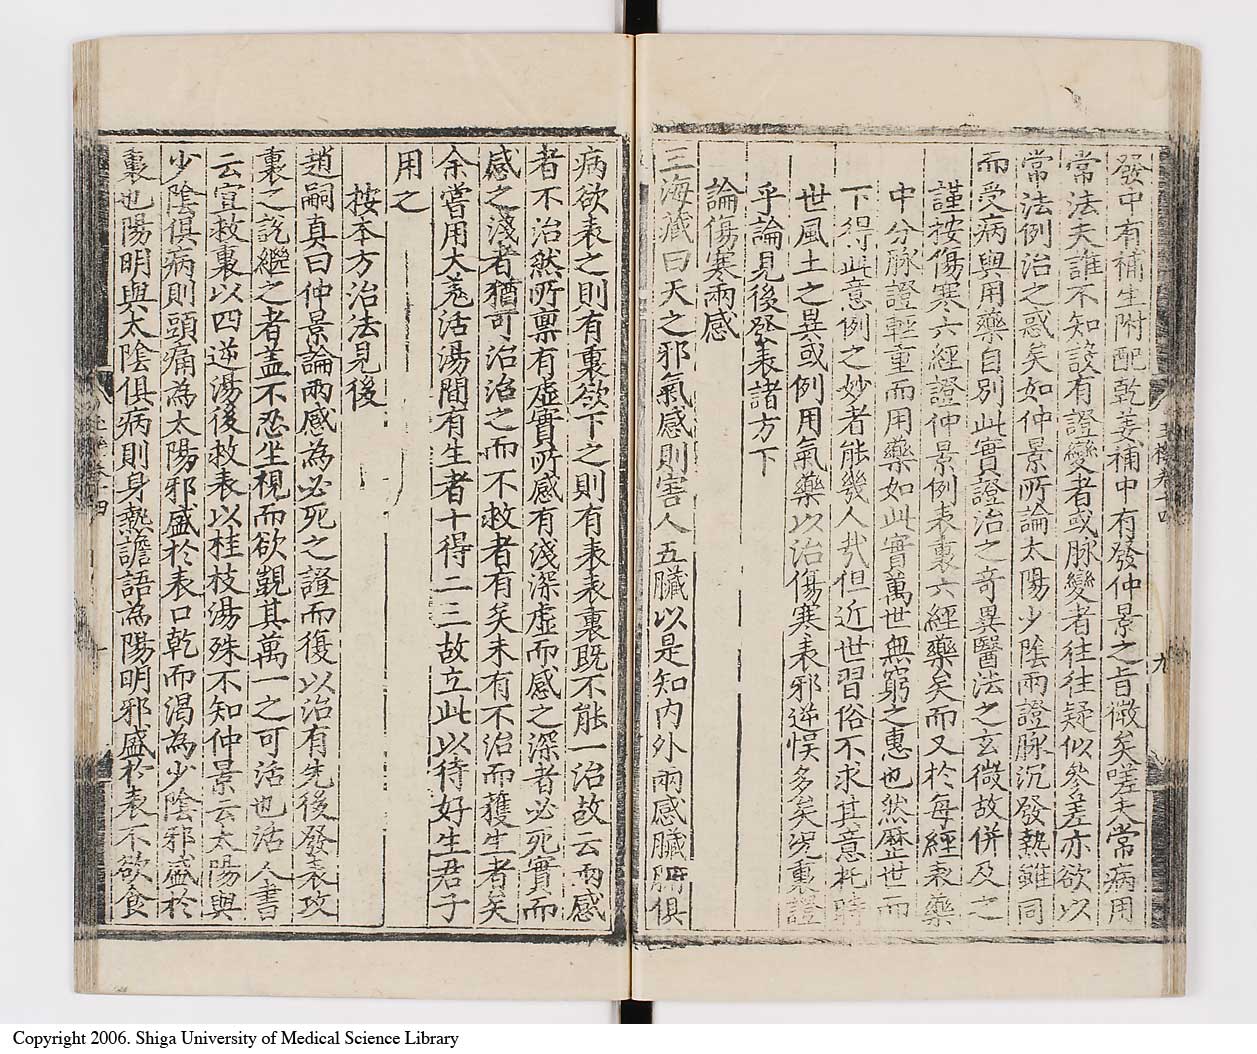 發中有補生附配乾姜補中有發仲景之旨微矣嗟夫常病用
常法夫誰不知設有證變者或脉變者往往疑似參差亦欲以
常法例治之惑矣如仲景所論太陽少陰兩證脉沉發熱雖同
而受病與用藥自別此實證治之奇異醫法之玄微故併及之
謹按傷寒六經證仲景例表裏六經藥矣而又於每經表藥
中分脉證輕重而用藥如此實萬世無窮之惠也然歷世而
下得此意例之妙者能幾人㢤但近世習俗不求其意托時
世風土之異或例用氣藥以治傷寒表邪逆悮多矣况裏證
乎論見後發表諸方下
論傷寒兩感
三海藏曰天之邪氣感則害人五臟以是知内外兩感臟腑俱
病欲表之則有裏欲下之則有表表裏既不能一治故云兩感
者不治然所禀有虚實所感有淺深虚而感之深者必死實而
感之淺者猶可治治之而不救者有矣未有不治而獲生者矣
余嘗用大羗活湯間有生者十得二三故立此以待好生君子
用之
按本方治法見後
趙嗣真曰仲景論兩感為必死之證而復以治有先後發表攻
裏之說繼之者盖不忍坐視而欲覬其萬一之可活也活人書
云宜救裏以四逆湯後救表以桂枝湯殊不知仲景云太陽與
少陰俱病則頭痛為太陽邪盛於表口乾而渴為少陰邪盛於
裏也陽明與太陰俱病則身熱譫語為陽明邪盛於表不欲食